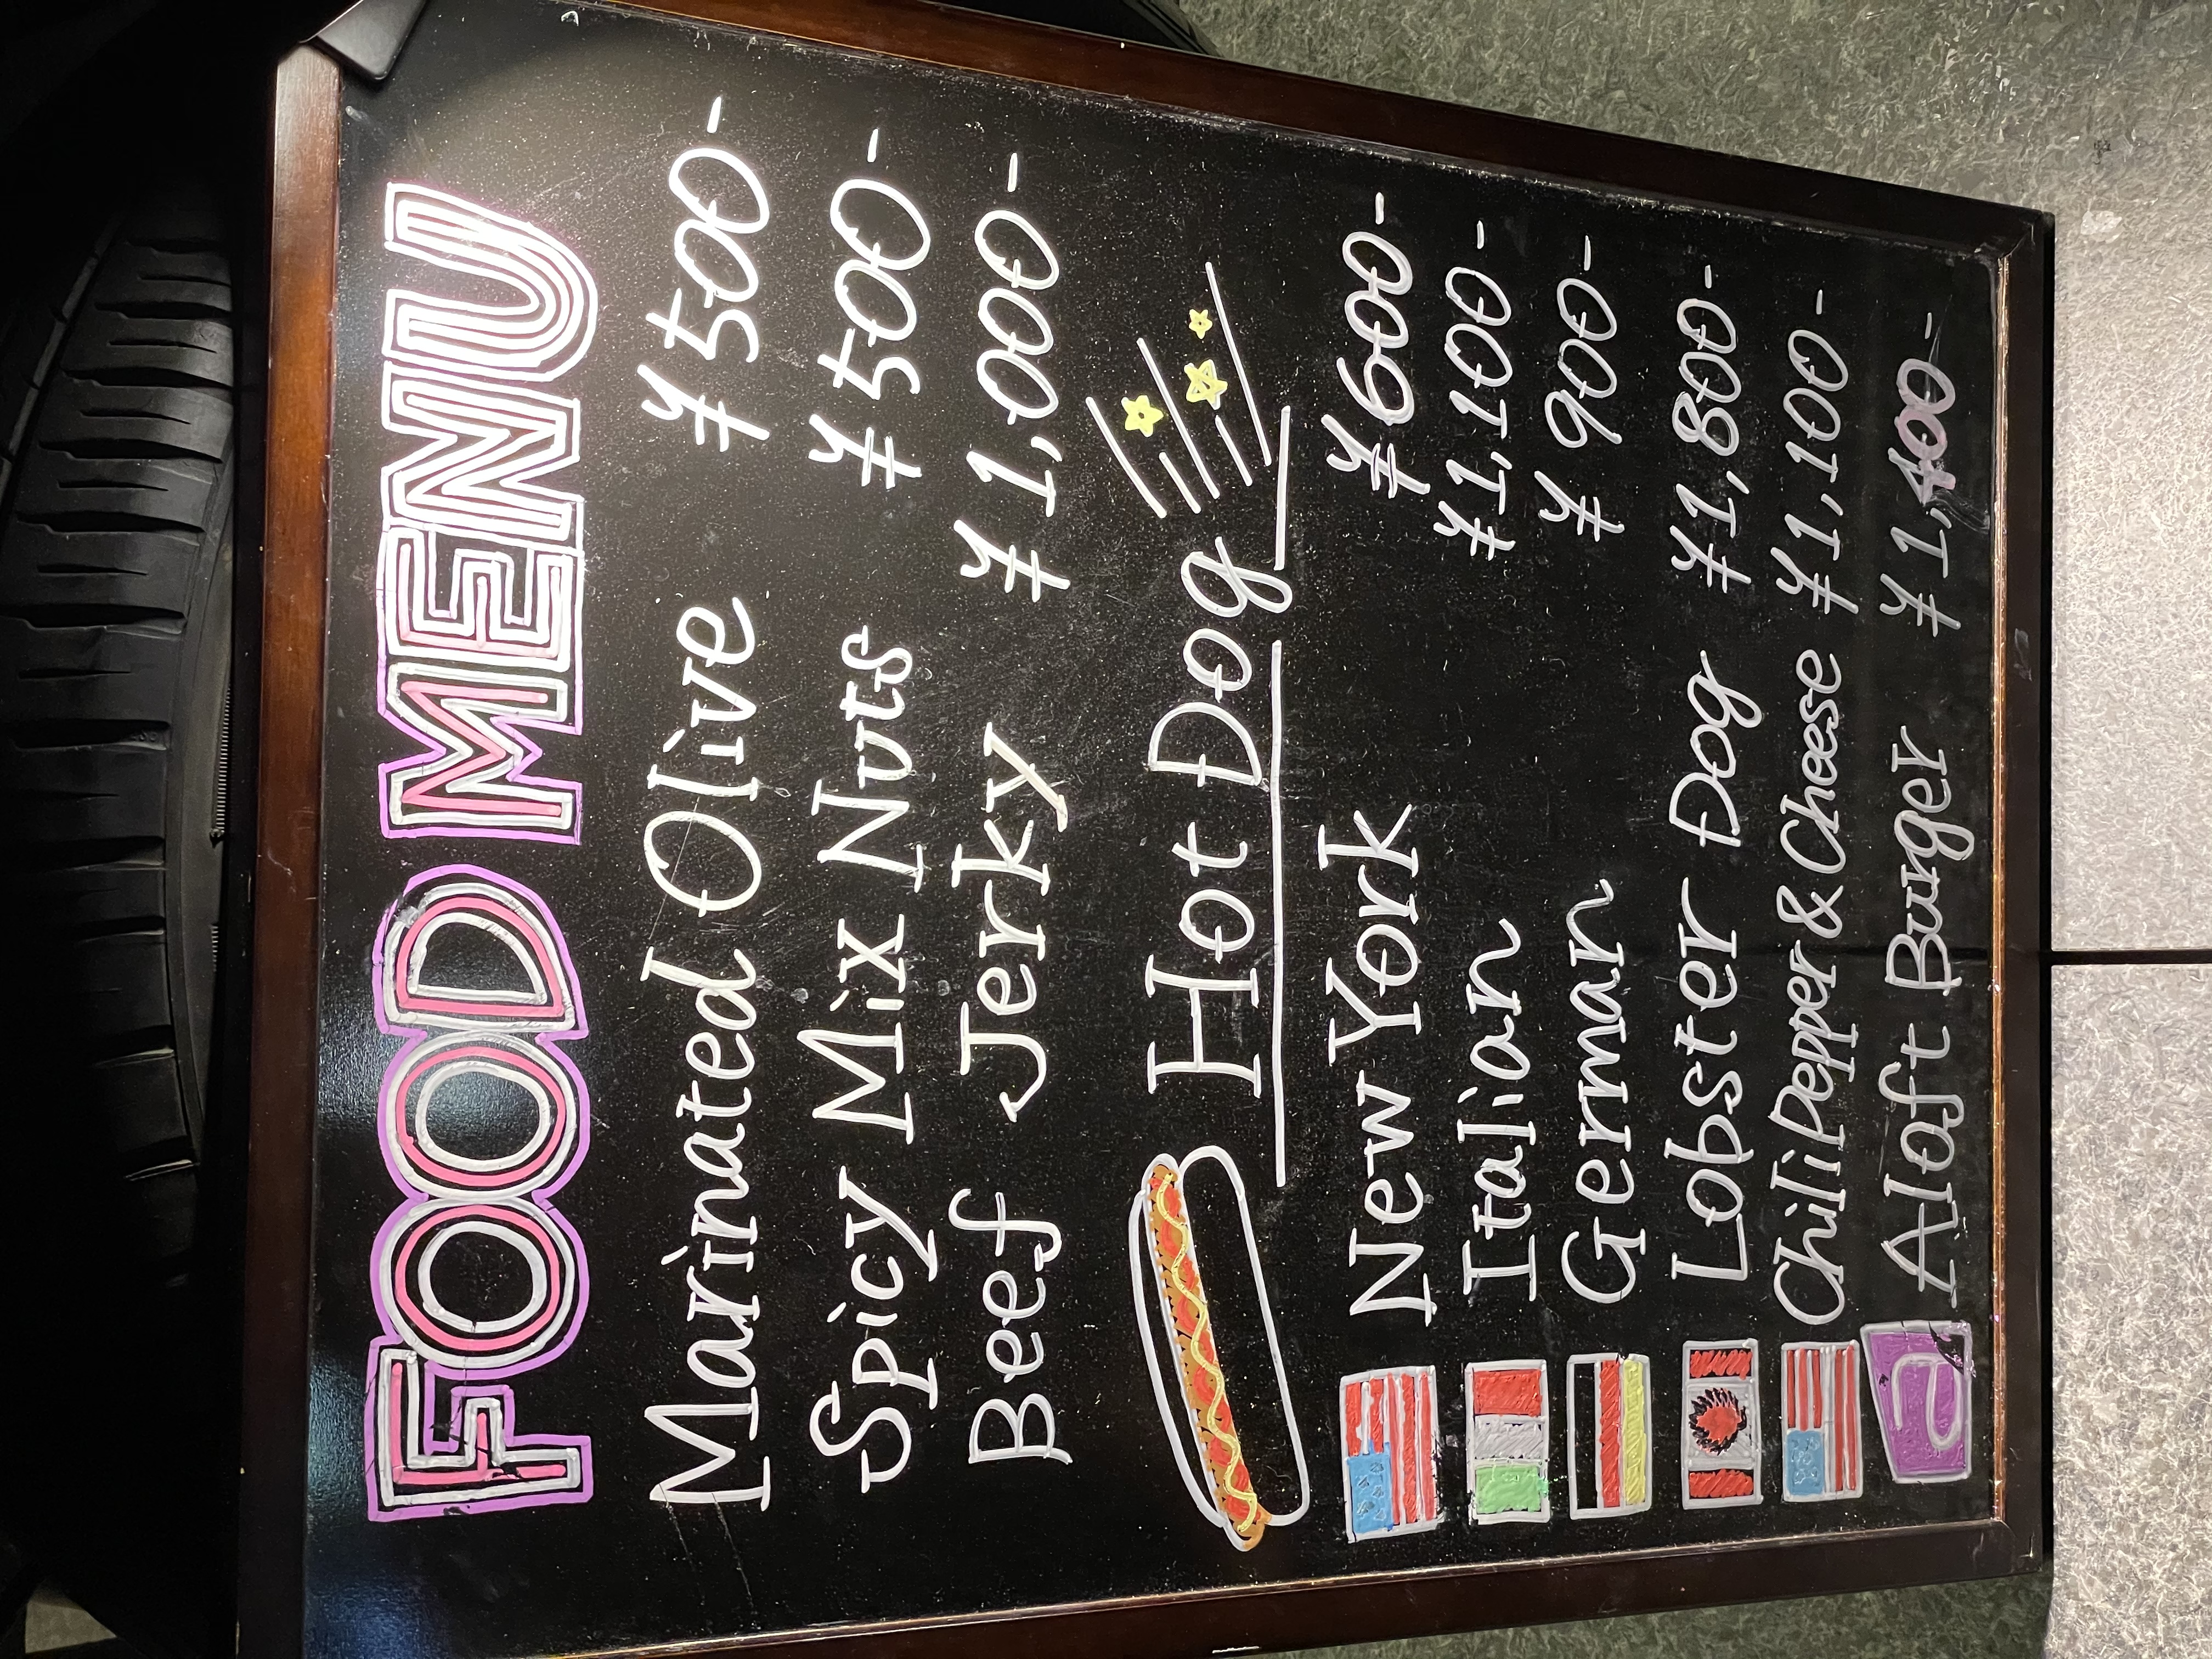 FOOD MENU
Marinated Olive ¥500-
Spicy Mix Nuts ¥500-
Beef Jerky ¥1,000-
Hot Dog
New York ¥600-
Italian ¥1,100-
German ¥900-
Lobster Dog ¥1,800-
Chili Pepper & Cheese ¥1,100-
a Aloft Burger ¥1,400-